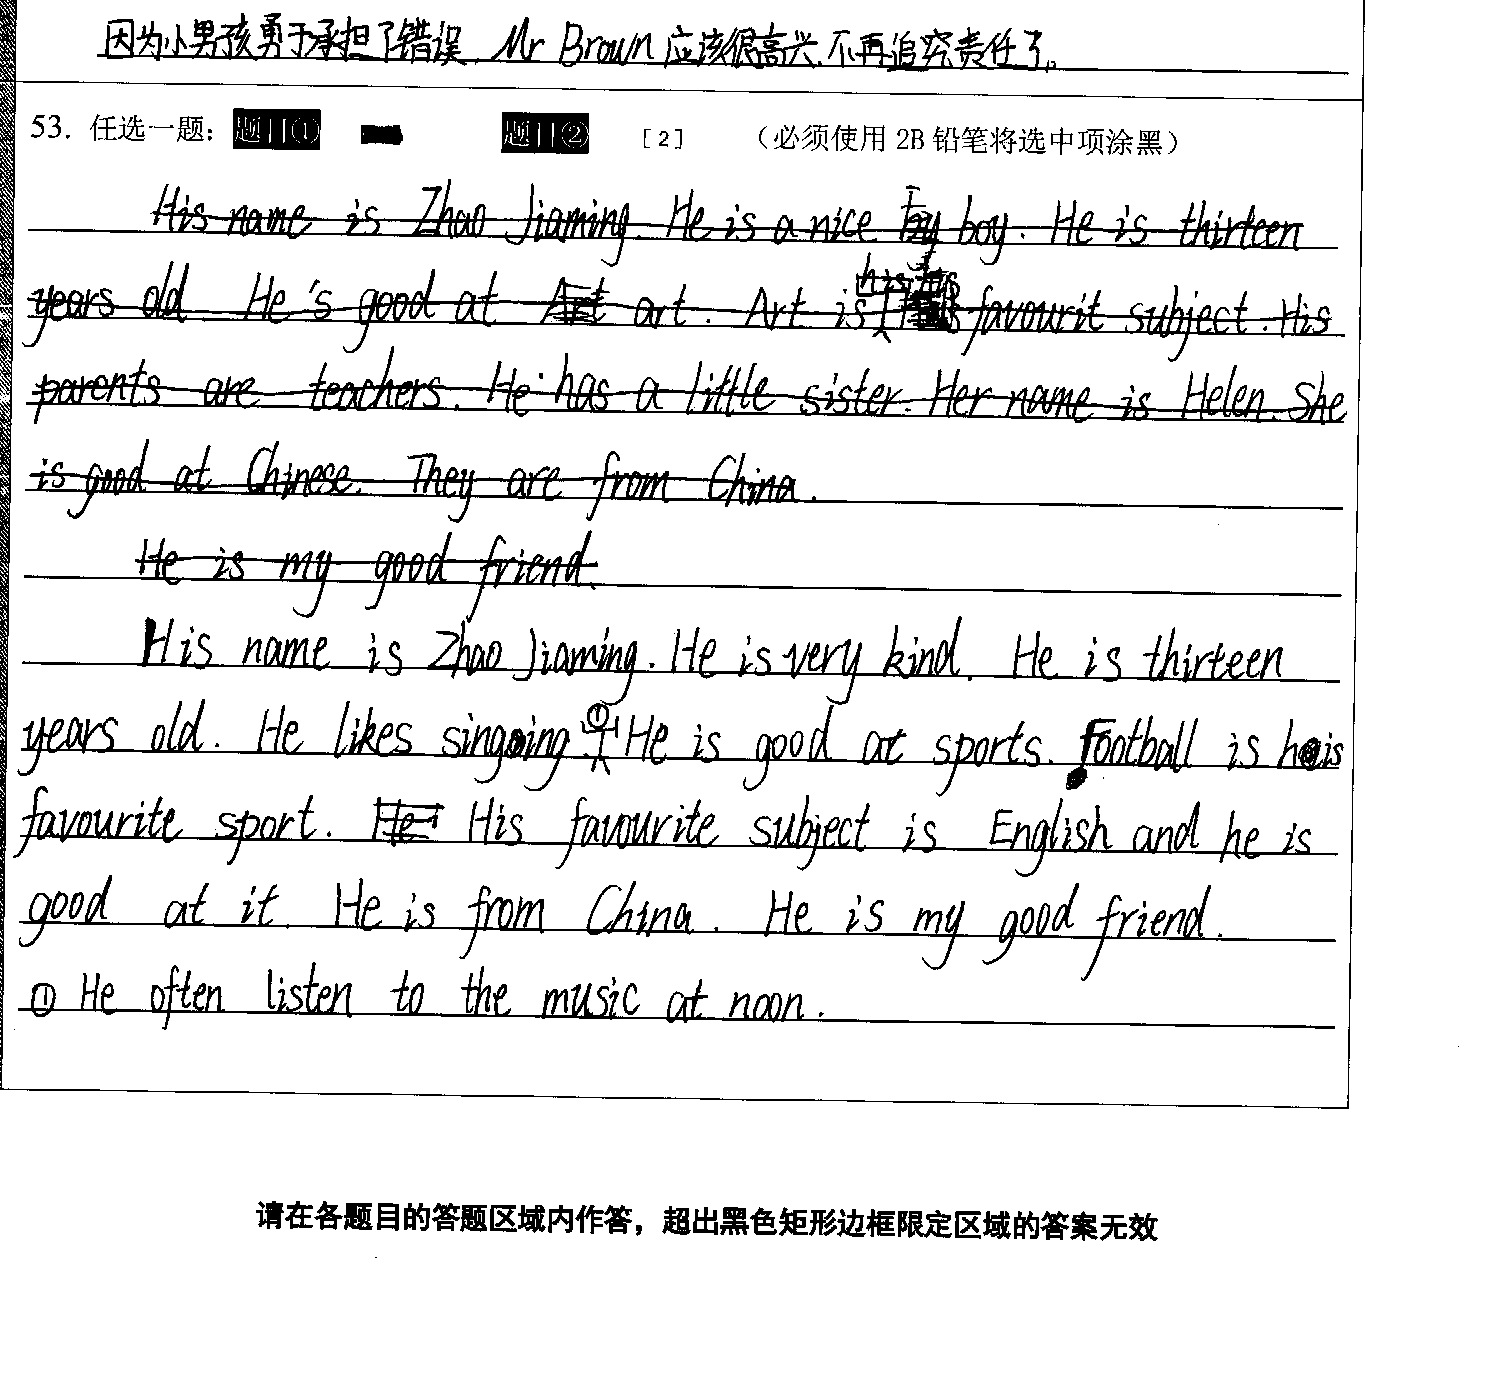 因为小男孩勇于承担了错误, Mr Brown 应该很高兴,不再追究责任了。
53. 任选一题: 题目① 题目② [2] (必须使用 2B 铅笔将选中项涂黑)
His name is Zhao Jiaming. He is a nice boy. He is thirteen
years old He's good at art. Art is his favourit subject. His
parents are teachers. He has a little sister. Her name is Helen. She
is good at Chinese. They are from China.
He is my good friend.
His name is Zhao Jiaming. He is very kind. He is thirteen
years old. He likes singing ① He is good at sports. Football is his
favourite sport. He i His favourite subject is English and he is
good at it. He is from China. He is my good friend.
① He often listen to the music at noon.
请在各题目的答题区域内作答，超出黑色矩形边框限定区域的答案无效